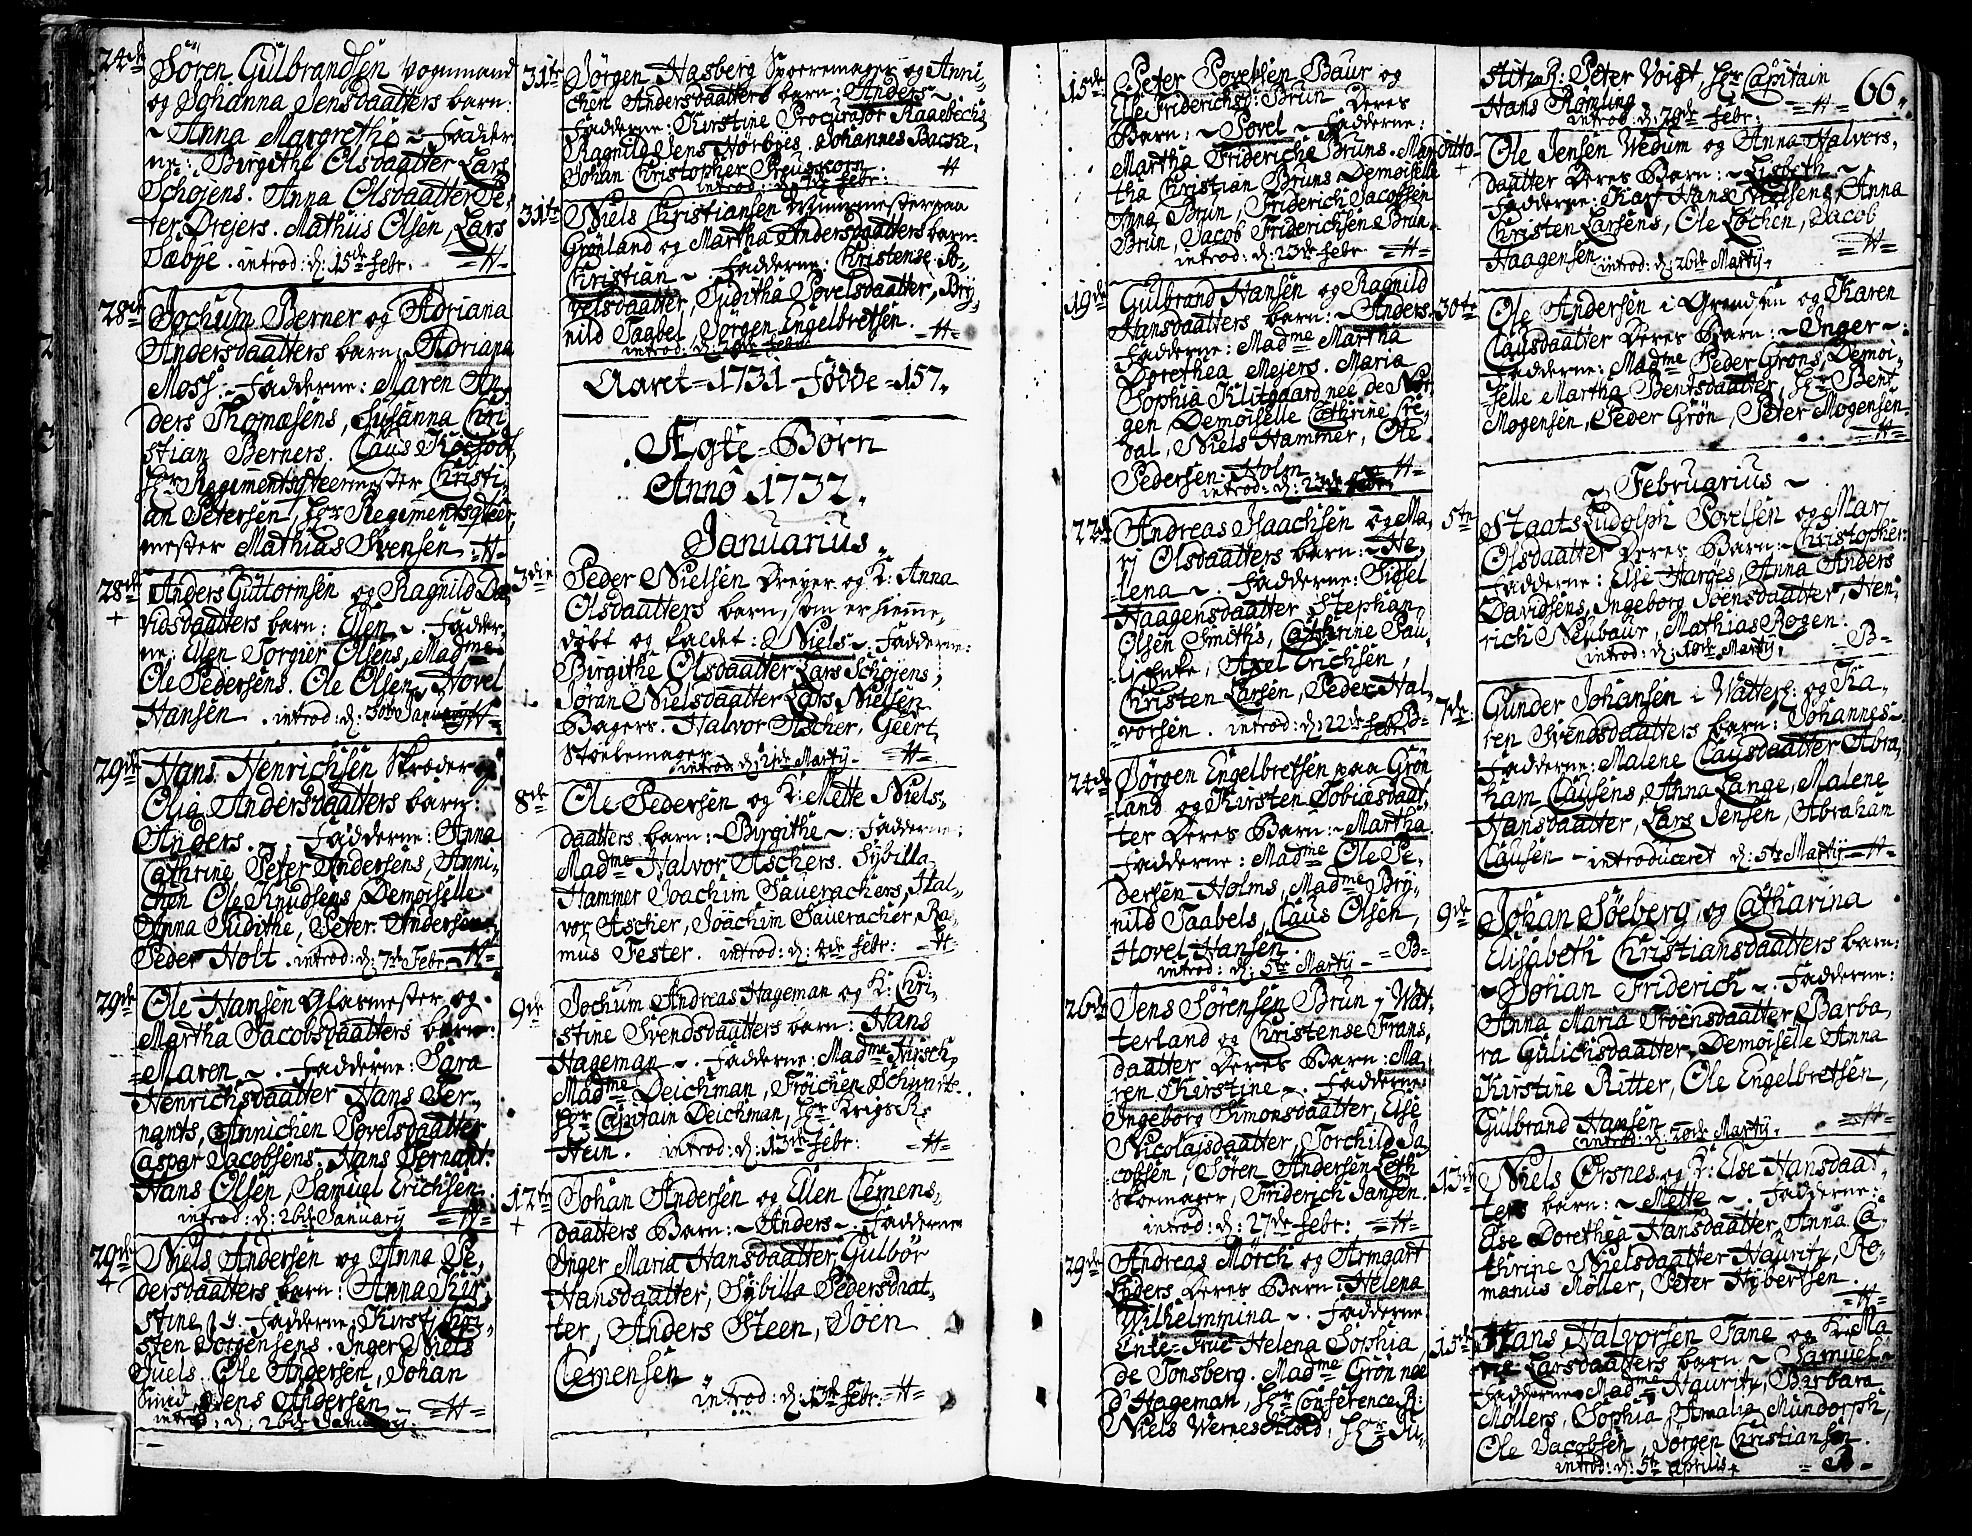 24de Sören Gülbrandsen Vognmand
og Johanna Jensdaatters barn:
~ Anna Margrethe ~ Fadder
ne: Birgithe Olsdaatter Lars
Schöjens. Anna Olsdaatter Pe-
ter Drejers. Mathiis Olsen, Lars
Dæbye. introd: d: 15de Febr. =H=
28de Jochum Berner og Adriana
Andersdaatters barn: Adriana
Moss: ~ Fadderne: Maren An-
ders Thomæsens, Susanna Chri-
stian Berners. Claus Roefodt,
Hr Regimentsqteermester Christi-
an Petersen, Hr Regimentsqteer-
mester Mathias Svensen =H=
28de + Anders Guttormsen og Ragnild Da-
vidsdaatters barn: Elen ~. Fadder-
ne: Elen Torgier Olsens, Madme
Ole Pedersens. Ole Olsen, Hovel
Hansen. introd: d: 30te January =H=
29de Hans Henrichsen Skröder og
Olia Andersdaatters barn:
Anders. ~ Fadderne: Anna
Cathrine Peter Andersens, Anni-
chen Ole Knudsens Demoiselle
Anna Judithe, Peter Andersen
Peder Holt. introd: d: 7de Febr. =H=
29de Ole Hansen Glarmester og
Martha Jacobsdaatters barn:
=Maren ~. Fadderne: Sara
Henrichsdaatter Hans Per-
nants, Annichen Povelsdaatter
Caspar Jacobsens. Hans Pernant.
Hans Olsen, Samuel Erichsen.
introd: d: 26de January =H=
29de + Niels Andersen og Anna Pe-
dersdaatters barn: Anna Kir-
stine ~. Fadderne: Kirsti Chri-
sten Jörgensens. Inger Niels
Juels. Ole Andersen, Johan
Smid, Jens Andersen
introd: d: 26de January. =H=
31te Jörgen Hasberg Sporemager og Anni-
chen Andersdaatters barn: Anders ~
Fadderne: Kirstine Procurator Raasbechs
Ragnild Jens Nörbyes. Johannes Bache,
Johan Christopher Preuscorn
introd: d: 7de Febr: H
31te Niels Christiansen Muurmester paa
Grönland og Martha Andersdaatters barn
Christian ~. Fadderne: Christense Po-
velsdaatter, Juditha Povelsdaatter, Bry-
nild Taabel, Jörgen Engelbretsen. =H=
introd: d: 20de Febr
Aaret = 1731 Födde = 157.
Ægte = Börn
Anno 1732.
Januarius.
3die Peder Nielsen Drejer og K: Anna
Olsdaatters barn, som er hieme-
döbt og kaldet: Niels ~ Fadderne:
Birgithe Olsdaatter Lars Schöjens,
Jöran Nielsdaatter Lars Nielsen
Bagers. Halvor Ascher, Geert
Stoelemager
introd: d: 21de Martij. =H=
8de Ole Pedersen og K: Mette Niels-
daatters barn: ~ Birgithe ~: Fadderne:
Madme Halvor Aschers. Sybilla
Hammer Joachim Saverachers, Hal-
vor Ascher, Joachim Saveracher, Ra-
mus Fester. introd: d: 4de Febr: =H=
9de Jochum Andreas Hageman og K: Chri-
stine Svendsdaatters barn: Hans
Hageman ~. Fadderne: Madme Hirsch,
Madme Deichman, Fröichen Schmite.
Hr Capitain Deichman, Hr Krigs R:
Hein. introd: d: 13de Febr: =H=
12te + Johan Andersen og Ellen Clemens-
daatters Barn: ~ Anders ~. Fadderne
Inger Maria Hansdaatter, Gulbör
Hansdaatter, Sybilla Pedersdaat-
ter, Anders Steen, Joen
Clemensen
introd: d: 13de Febr: =H=
15de Peter Povelsen Baur og
Else Friderichsd: Brun Deres
Barn: ~ Povel ~ Fadderne:
Martha Friderich Bruns. Mar-
tha Christian Bruns Demoiselle
Anna Brun, Friderich Jacobsen
Brun, Jacob Friderichsen Brun
introd: d: 23de Febr =H=
19de Gulbrand Hansen og Ragnild
Hansdaatters barn: ~ Anders.
Fadderne: Madme Martha
Dorethea Mejers. Maria
Sophia Klitgaard nee de Nor-
gen, Demoiselle Cathrine Cre-
dal, Niels Hammer, Ole
Pedersen Holm =H=
introd: d: 23de Febr:
22de Andreas Isaachsen og Ma-
rj Olsdaatters barn: ~ He-
lena ~ Fadderne: Sigsel
Haagensdaatter Stephan
Olsen Smiths, Cathrine Pau-
li Enke, Axel Erichsen,
Christen Larsen, Peder Hal-
vorsen. introd: d: 22de Febr =B=
24de Jörgen Engelbretsen paa Grön
land og Kirsten Tobiasdaat-
ter Deres Barn: ~ Martha
Fadderne: Madme Ole Pe-
dersen Holms, Madme Bry-
nild Taabels, Claus Olsen,
Hovel Hansen
introd: d: 5te Martij =B=
26de Jens Sörensen Brun i Wat-
terland og Christense Frans-
daatter Deres Barn: Ma-
ren Kirstine ~. Fadderne:
Ingeborg Simonsdaatter, Else
Nicolajsdaatter, Torchild Ja
cobsen, Sören Andersen Leth
Skoemager, Friderich Jansen.
introd: d: 27de Febr: =H=
29de Andreas Mörch og Armgart
Eyders Deres Barn: Helena
Wilhelmmina ~ Fadderne
Enke-Frue Helena Sophia
de Tonsberg. Madme Grön née
d' Hageman, Hr Conference R:
Niels Werneskiold, Hr Ju-
66.
stitz R: Peter Voigt Hr Capitain
Hans Römling =H=
introd: d: 28de Febr:
Ditto + Ole Jensen Wedum og Anna Halvors-
daatter Deres Barn: ~ Lisbeth ~
Fadderne: Kari Hans Nielsens, Anna
Christen Larsens, Ole Lochen, Jacob
Haagensen introd: d: 26de Martij =H=
30te Ole Andersen i Grændsen og Karen
Clausdaatter Deres Barn: ~ Inger ~:
Fadderne: Madme Peder Gröns, Demoi-
selle Martha Bentsdaatter, Hr Bent
Mogensen, Peder Grön, Peter Mogensen
=H=
~ Februarius ~
5te Staats Ludolph Povelsen og Marj
Olsdaatter Deres Barn: ~ Christopher:
Fadderne: Else Aaröes, Anna Anders
Davidsens, Ingeborg Joensdaatter, Hen-
rich Neubaur, Mathias Rogen:
introd: d: 18de Martij. B=
7de Gunder Johansen i Watterl: og Ka-
ren Svendsdaatters barn: Johannes ~
Fadderne: Malene Clausdaatter Abra-
ham Clausens, Anna Lange, Malene
Hansdaatter, Lars Jensen, Abraham
Clausen ~ introduceret d: 5te Martij =H=
9de Johan Söeberg og Catharina
Elisabeth Christiansdaatters barn:
~ Johan Friderich ~. Fadderne:
Anna Maria Troensdaatter, Barba-
ra Gulichsdaatter, Demoiselle Anna
Kirstine Ritter, Ole Engelbretsen,
Gulbrand Hansen =H=
introd: d: 20de Martij.
13de Niels Örsnes og K: Else Hansdaat-
ters barn: ~ Mette ~. Fadderne:
Else Dorethea Hansdaatter, Anna Ca-
thrine Nielsdaatter Hauritz, Ro-
manus Möller, Peter Hybertsen.
=H=
15de Hans Halvorsen Fane og K: Ma
rie Larsdaatters barn ~ Samuel ~
Fadderne Madme Hauritz, Barbara
Möllers, Sophia Amalia Mundorph,
Ole Jacobsen, Jörgen Christiansen.
introd: d: 5te Aprilis